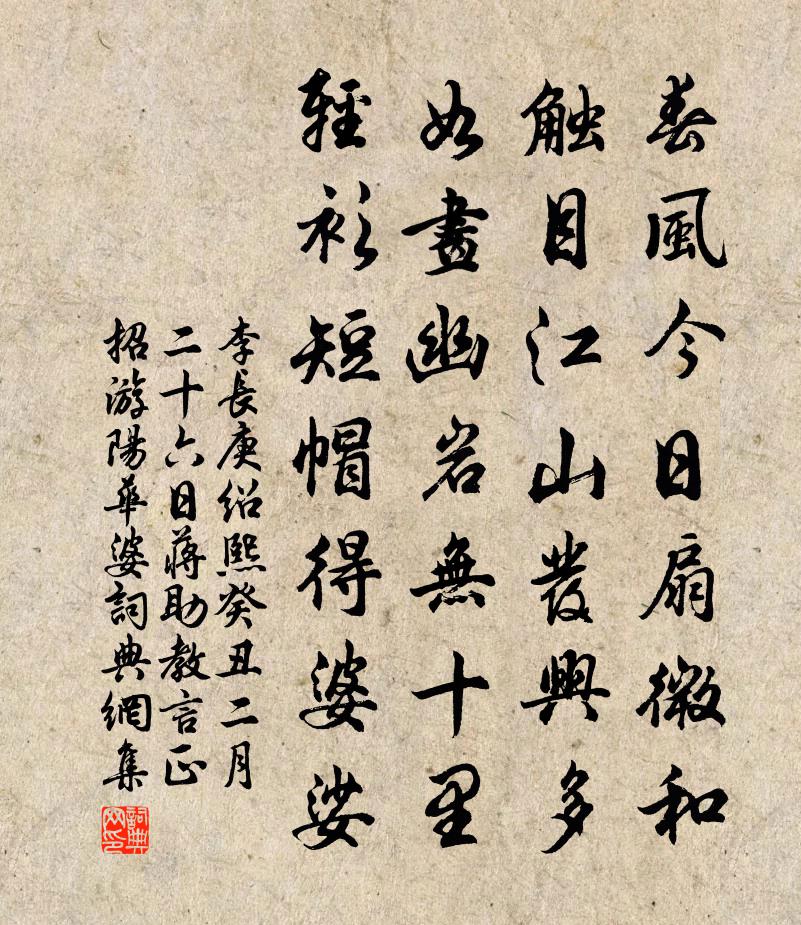 春風今日扇微和
触目江山發興多
如畫幽岩無十里
輕衫短帽得婆娑
李長庚紹熙癸丑二月
二十六日蔣助教言正
招游陽華婆詞典網集
詞典
网印